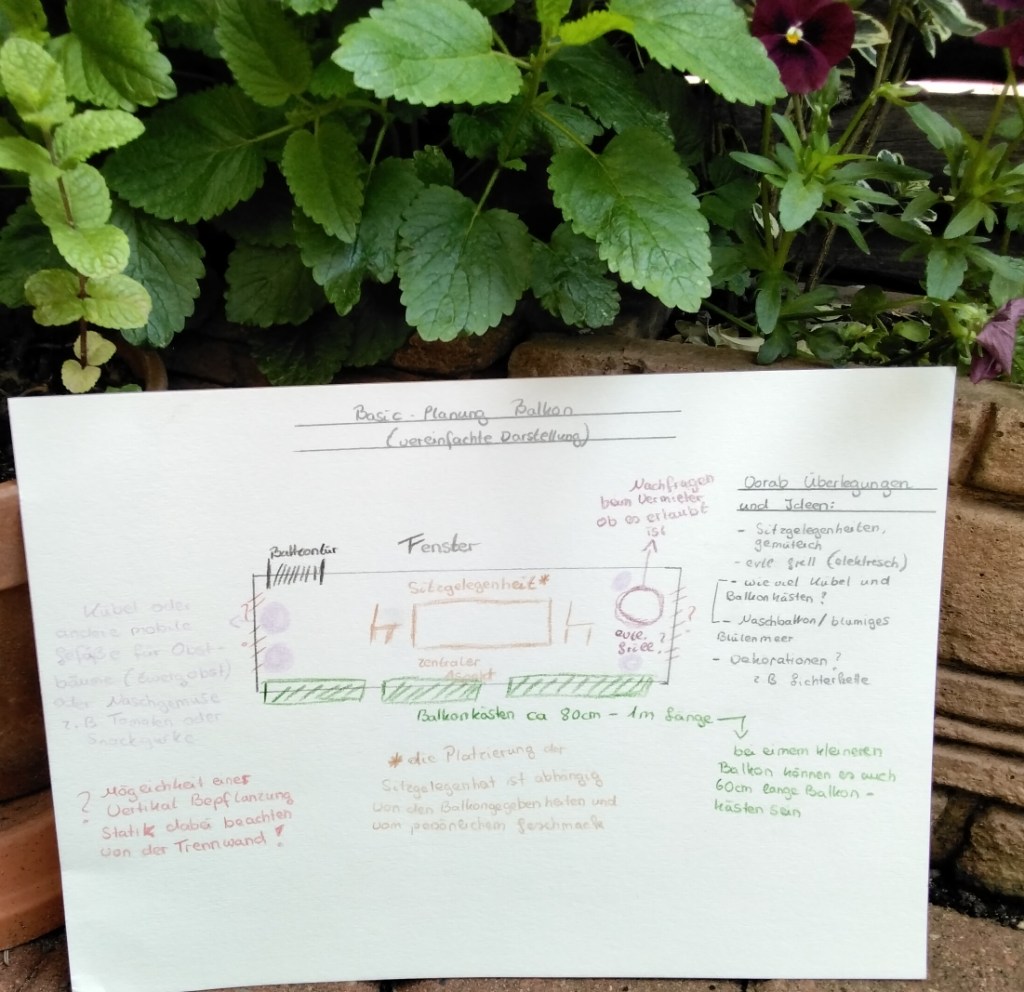 Basic-Planung Balkon
(vereinfachte Darstellung)
Nachfragen
beim Vermieter
ob es erlaubt
ist
Vorab Überlegungen
und Ideen:
- Sitzgelegenheiten,
gemütlich
- evtl Grill (elektrisch)
- wie viel Kübel und
Balkonkästen?
- Naschbalkon/blumiges
Blütenmeer
- Dekorationen?
z B Lichterkette
Balkontür
Fenster
Sitzgelegenheit*
zentraler
Aspekt
evtl.
Grill?
?
?
Kübel oder
andere mobile
Gefäße für Obst-
bäume (Zwergobst)
oder Naschgemüse
z.B Tomaten oder
Snackgurke
Balkonkästen ca 80cm - 1m Länge
bei einem kleineren
Balkon können es auch
60cm lange Balkon-
kästen sein
* die Platzierung der
Sitzgelegenheit ist abhängig
von den Balkongegebenheiten und
vom persönlichem Geschmack
? Möglichkeit einer
Vertikal Bepflanzung
Statik dabei beachten
von der Trennwand!